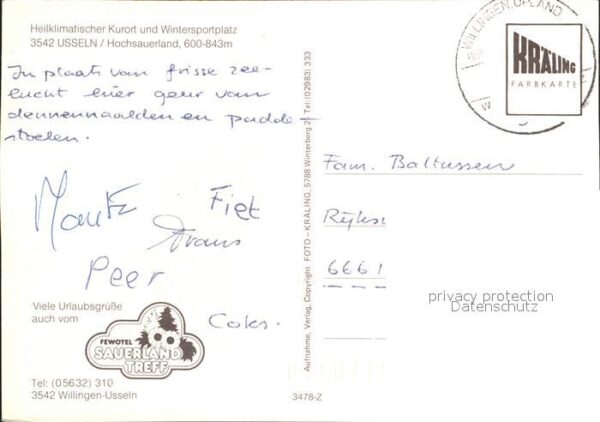 Heilklimatischer Kurort und Wintersportplatz
3542 USSELN / Hochsauerland, 600-843m
In plaats van frisse zee-
lucht hier geur van
dennennaalden en padde-
stoelen.
Fiet
Frans
Peer
Coks.
Viele Urlaubsgrüße
auch vom
FEWOTEL
SAUERLAND
TREFF
Tel: (05632) 310
3542 Willingen-Usseln
Aufnahme, Verlag, Copyright FOTO-KRÄLING, 5788 Winterberg 2, Tel: (02983) 333
3478-Z
WILLINGEN, UPLAND
KRÄLING
FARBKARTE
Fam. Baltussen
Rijks
6661
privacy protection
Datenschutz